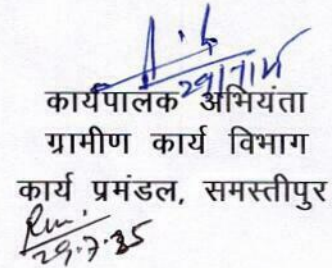 29/7/25
कार्यपालक अभियंता
ग्रामीण कार्य विभाग
कार्य प्रमंडल, समस्तीपुर
29.7.25